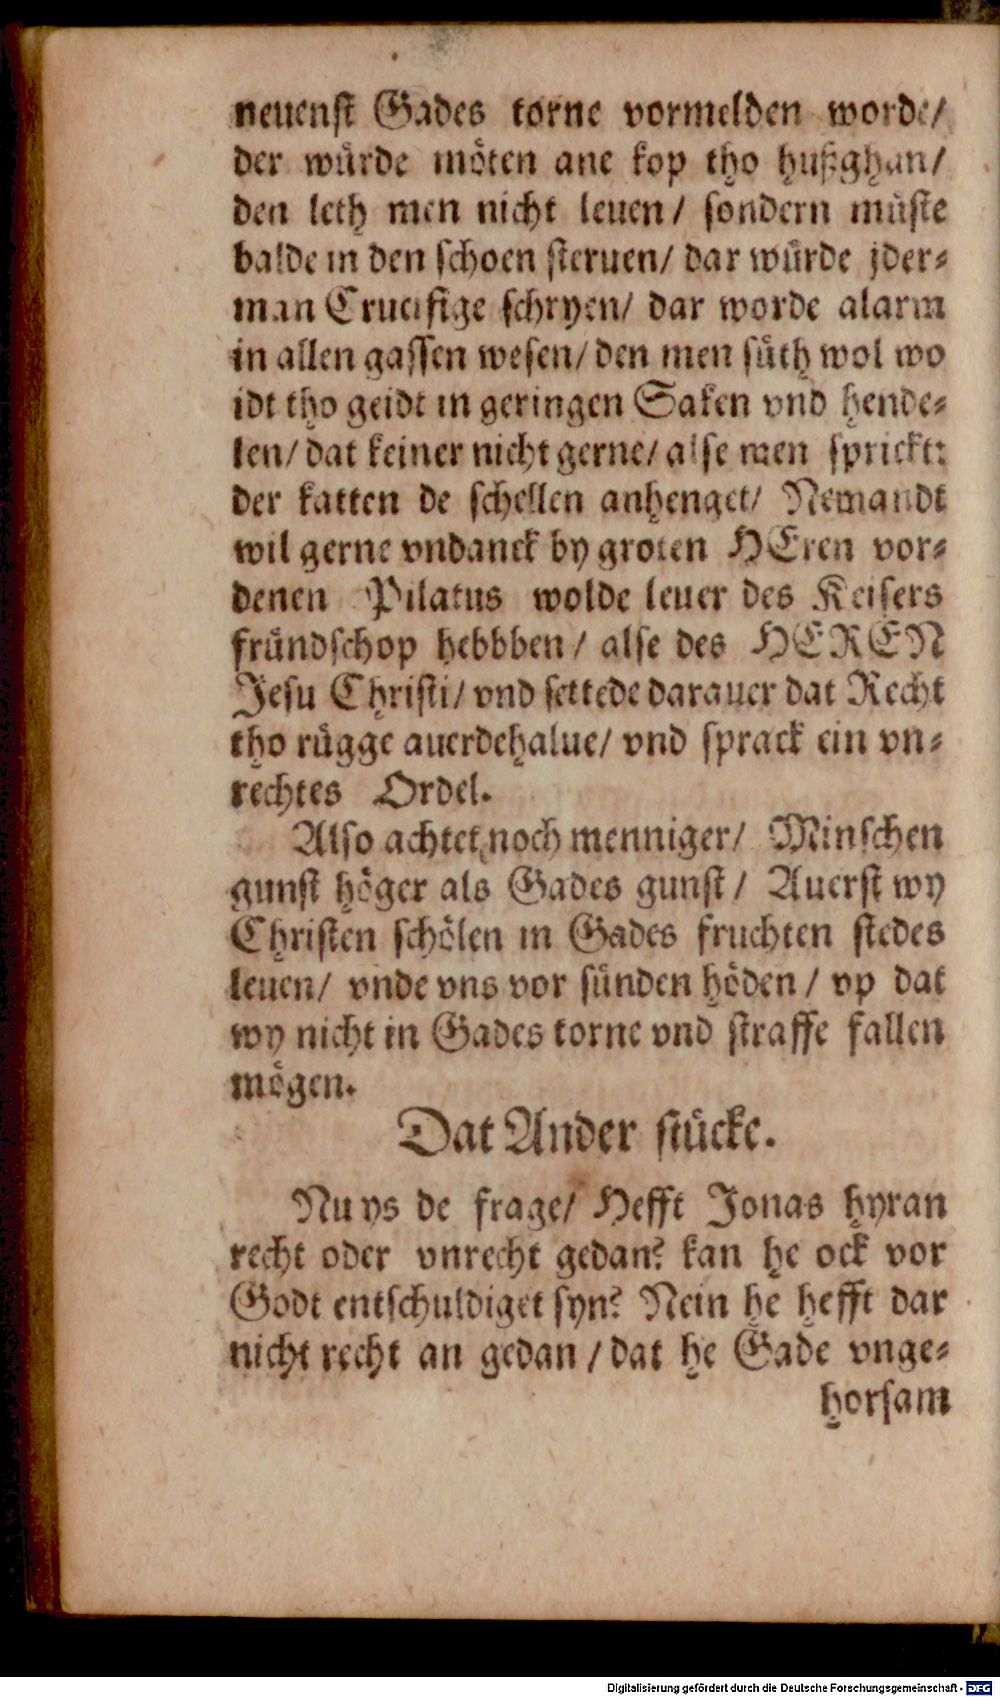 neuenst Gades torne vormelden worde/
der würde möten ane kop tho hußghan/
den leth men nicht leuen/ sondern müste
balde in den schoen steruen/ dar würde jder-
man Crucifige schryen/ dar worde alarm
in allen gassen wesen/ den men süth wol wo
idt tho geidt in geringen Saken vnd hende-
len/ dat keiner nicht gerne/ alse men sprickt:
der katten de schellen anhenget/ Nemandt
wil gerne vndanck by groten HEren vor-
denen Pilatus wolde leuer des Keisers
fründschop hebbben/ alse des HEREN
Jesu Christi/ vnd settede darauer dat Recht
tho rügge auerdehalue/ vnd sprack ein vn-
rechtes Ordel.
Also achtet noch menniger/ Minschen
gunst höger als Gades gunst/ Auerst wy
Christen schölen in Gades fruchten stedes
leuen/ vnde vns vor sünden höden/ vp dat
wy nicht in Gades torne vnd straffe fallen
mögen.
Dat Ander stücke.
Nu ys de frage/ Hefft Jonas hyran
recht oder vnrecht gedan? kan he ock vor
Godt entschuldiget syn? Nein he hefft dar
nicht recht an gedan/ dat he Gade vnge-
horsam
Digitalisierung gefördert durch die Deutsche Forschungsgemeinschaft - DFG